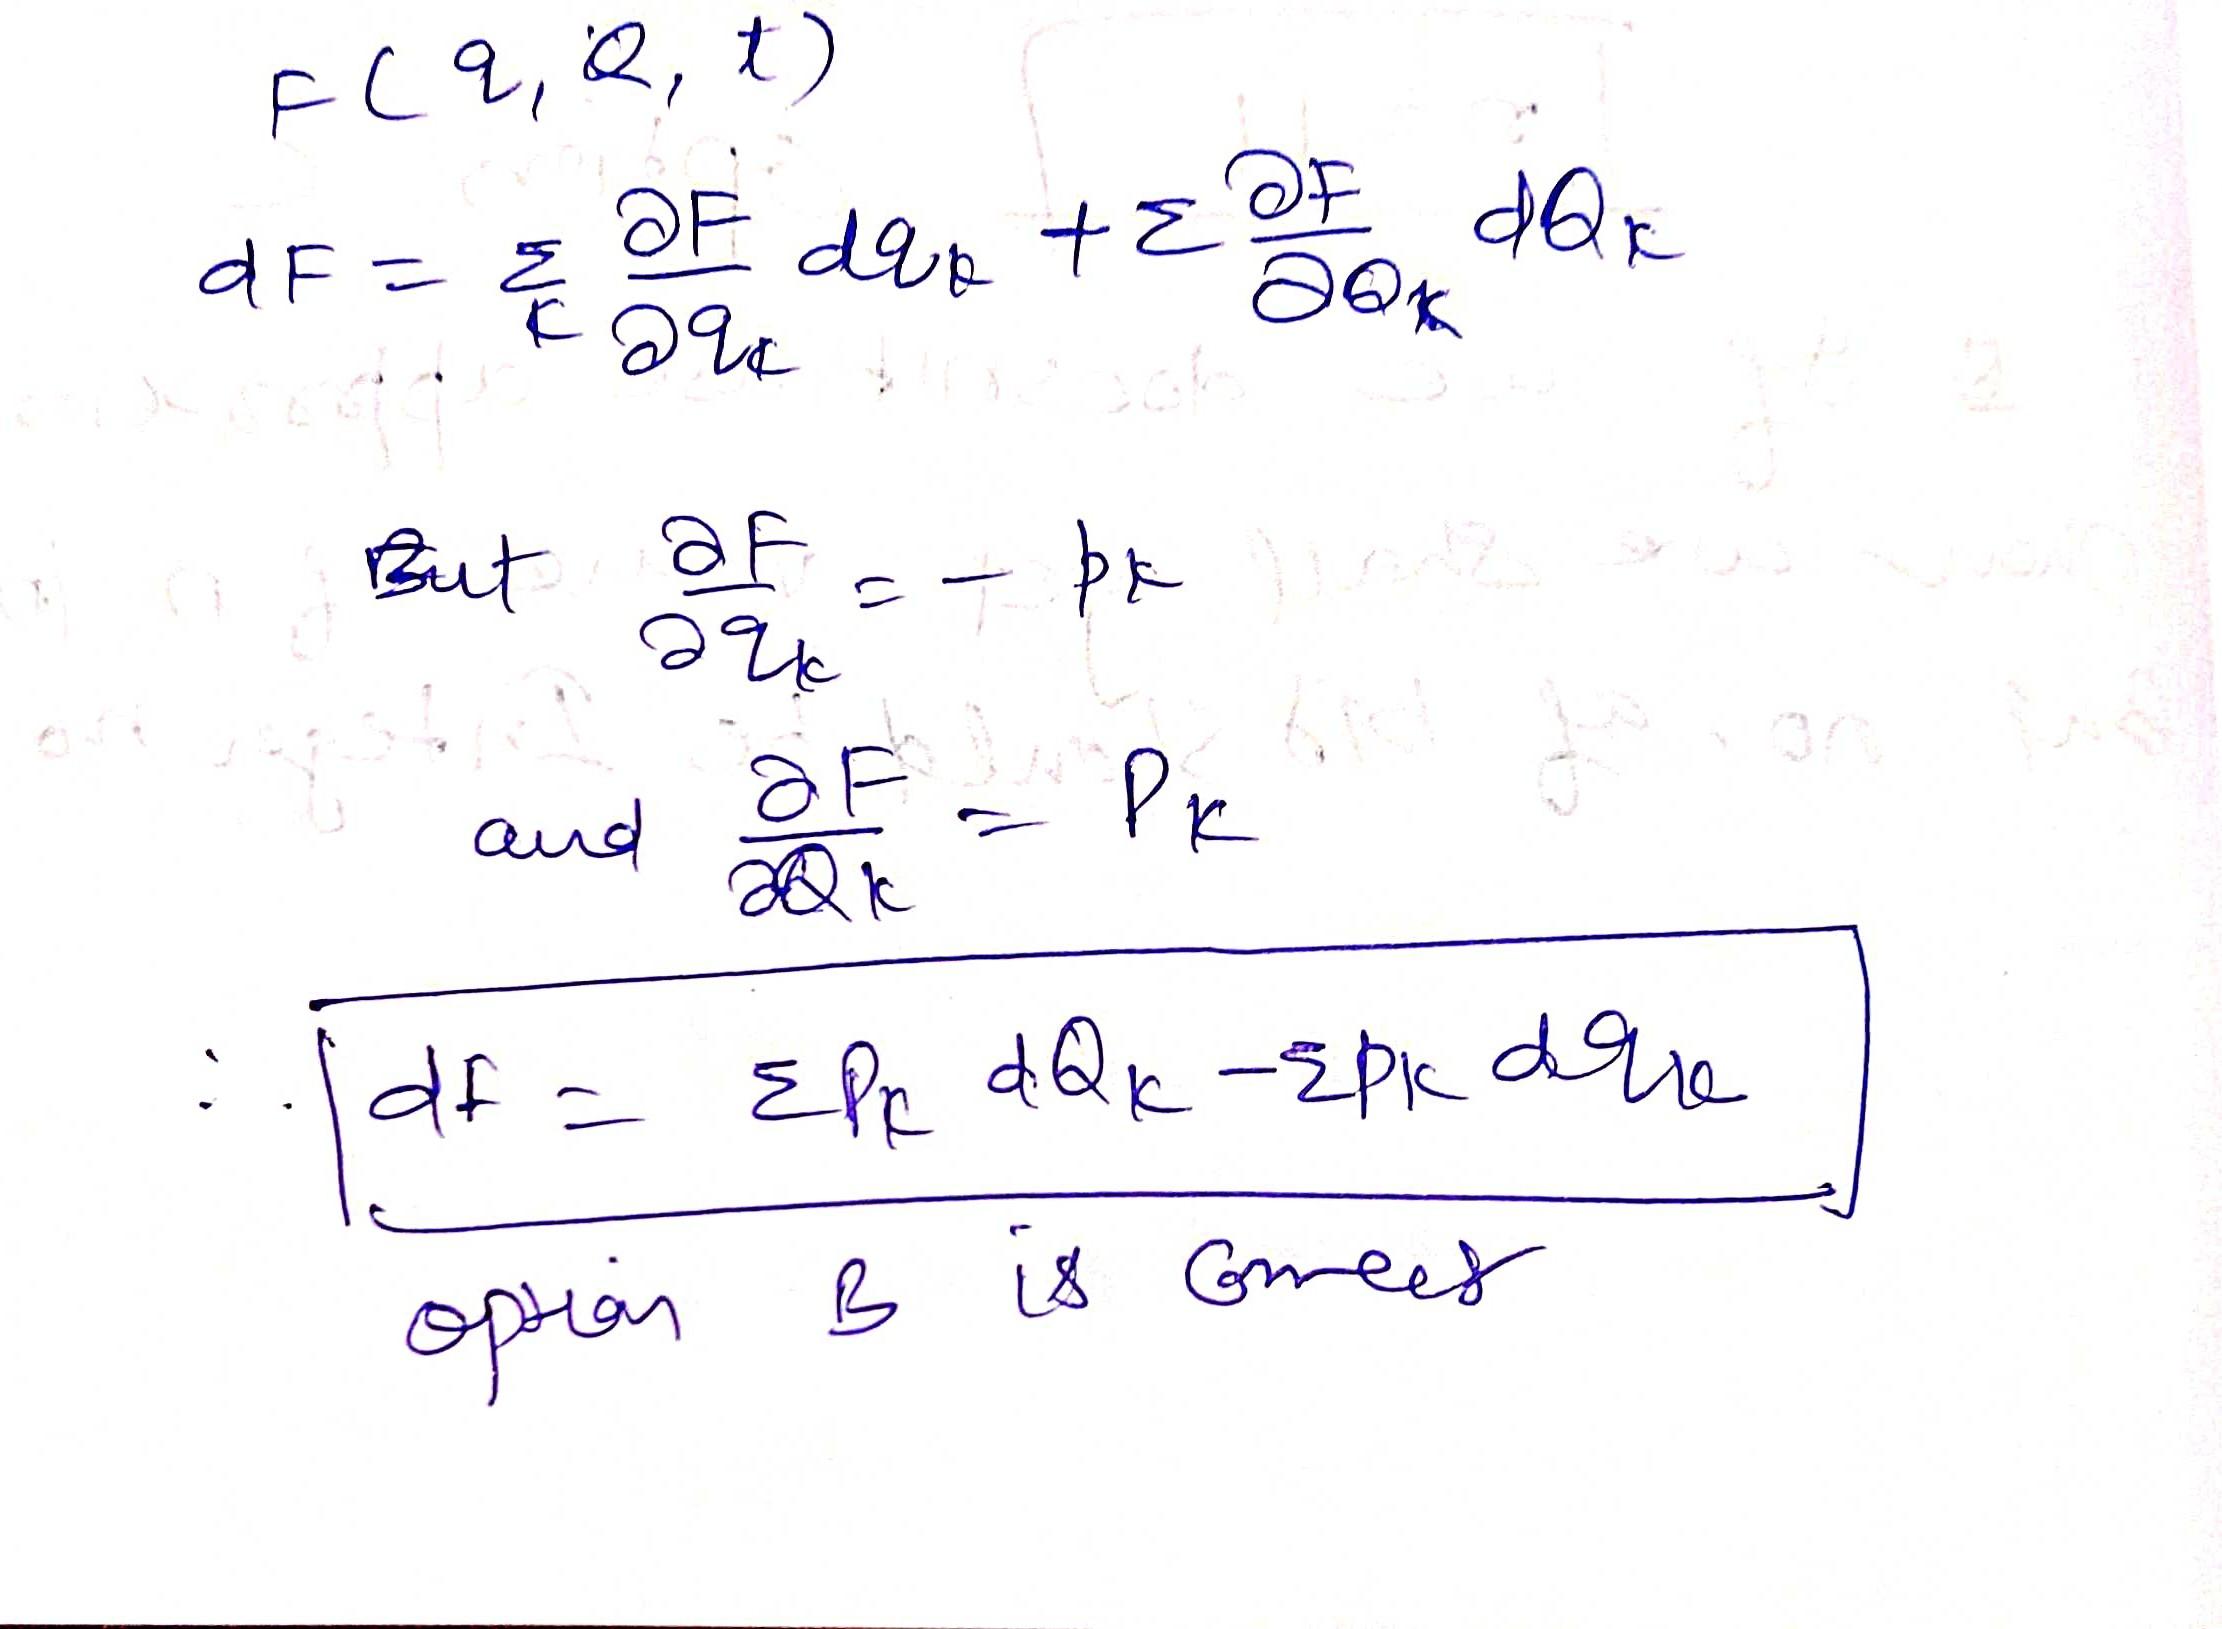 F(q, Q, t)
dF = Σ_k ∂F/∂q_k dq_k + Σ ∂F/∂Q_k dQ_k
But ∂F/∂q_k = - p_k
and ∂F/∂Q_k = P_k
∴ dF = ΣP_k dQ_k - Σp_k dq_k
option B is Correct